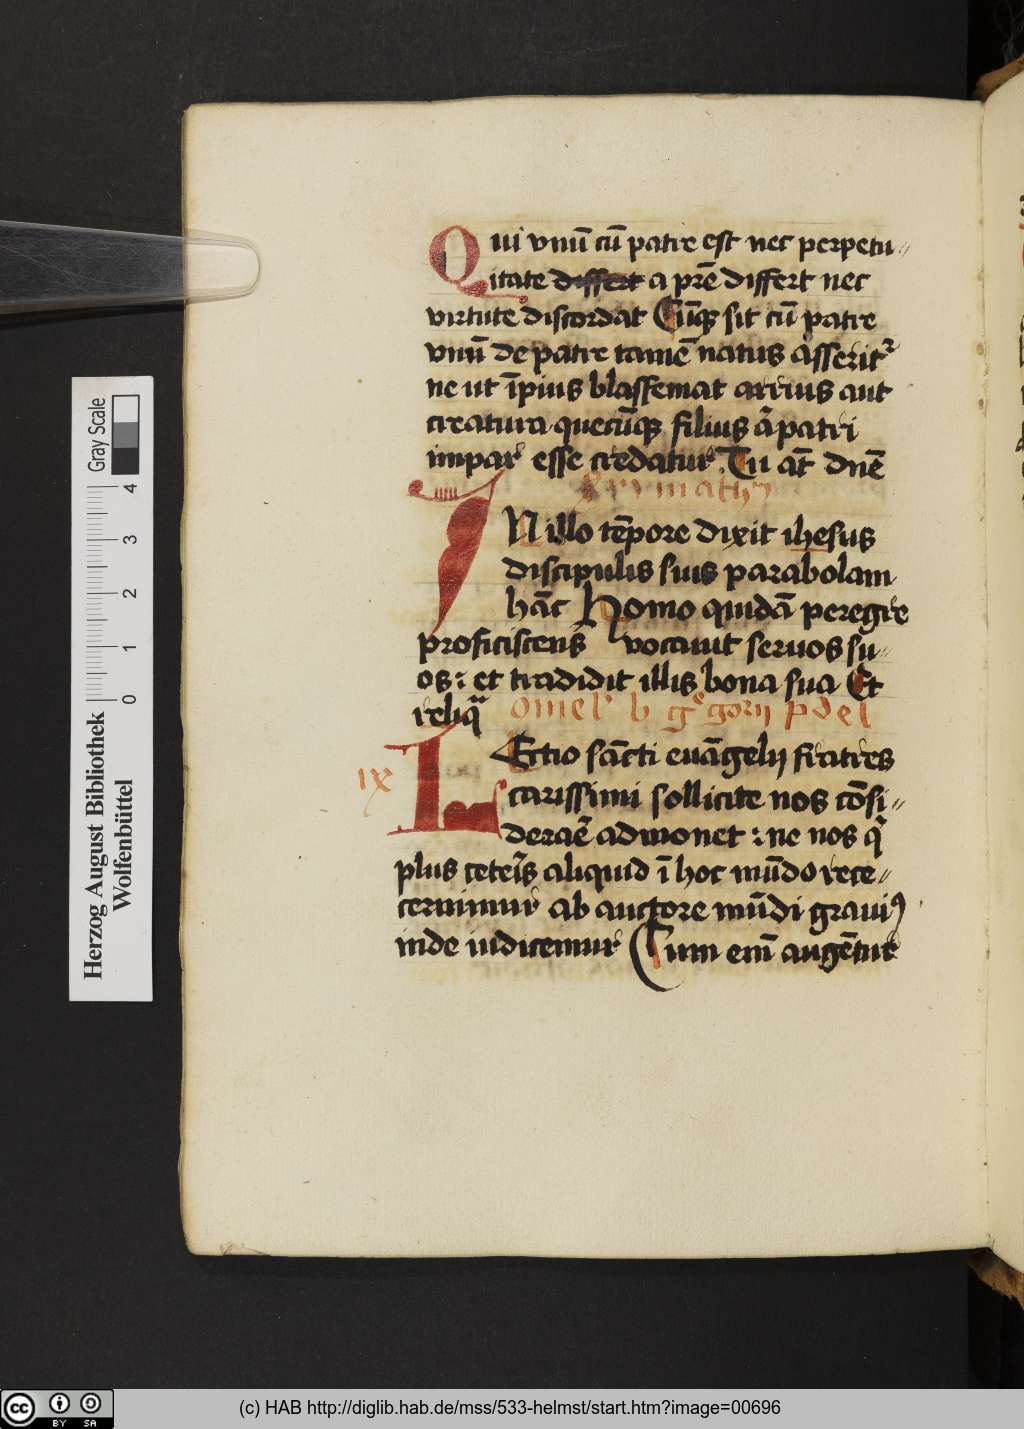 Qui vnū cū patre est nec perpetu〃
itate differt a prē differt nec
virtute discordat Cūqꝫ sit cū patre
vnū de patre tamē natus asserit᷑
ne ut īpius blasfemat arrius aut
creatura quecūqꝫ filius ā patri
impar esse credatur Tu at̄ dnē
INillo tēpore dixit ihesus
discipulis suis parabolam
hāc Homo quidā peregre
proficiscens vocauit seruos su〃
os: et tradidit illis bona sua Et
reliqͣ omel' b g°gorij p de l
LEctio sācti euāgelij fratres
ix
carissimi sollicite nos cōsi〃
deraē admonet : ne nos qͥ
plus ceteris aliquid ī hoc mūdo rece〃
cernimur ab auctore mūdi graui⁹
inde iudicemur Cum eni augētur
Herzog August Bibliothek
Wolfenbüttel
Gray Scale
0 1 2 3 4
cc BY SA
(c) HAB http://diglib.hab.de/mss/533-helmst/start.htm?image=00696